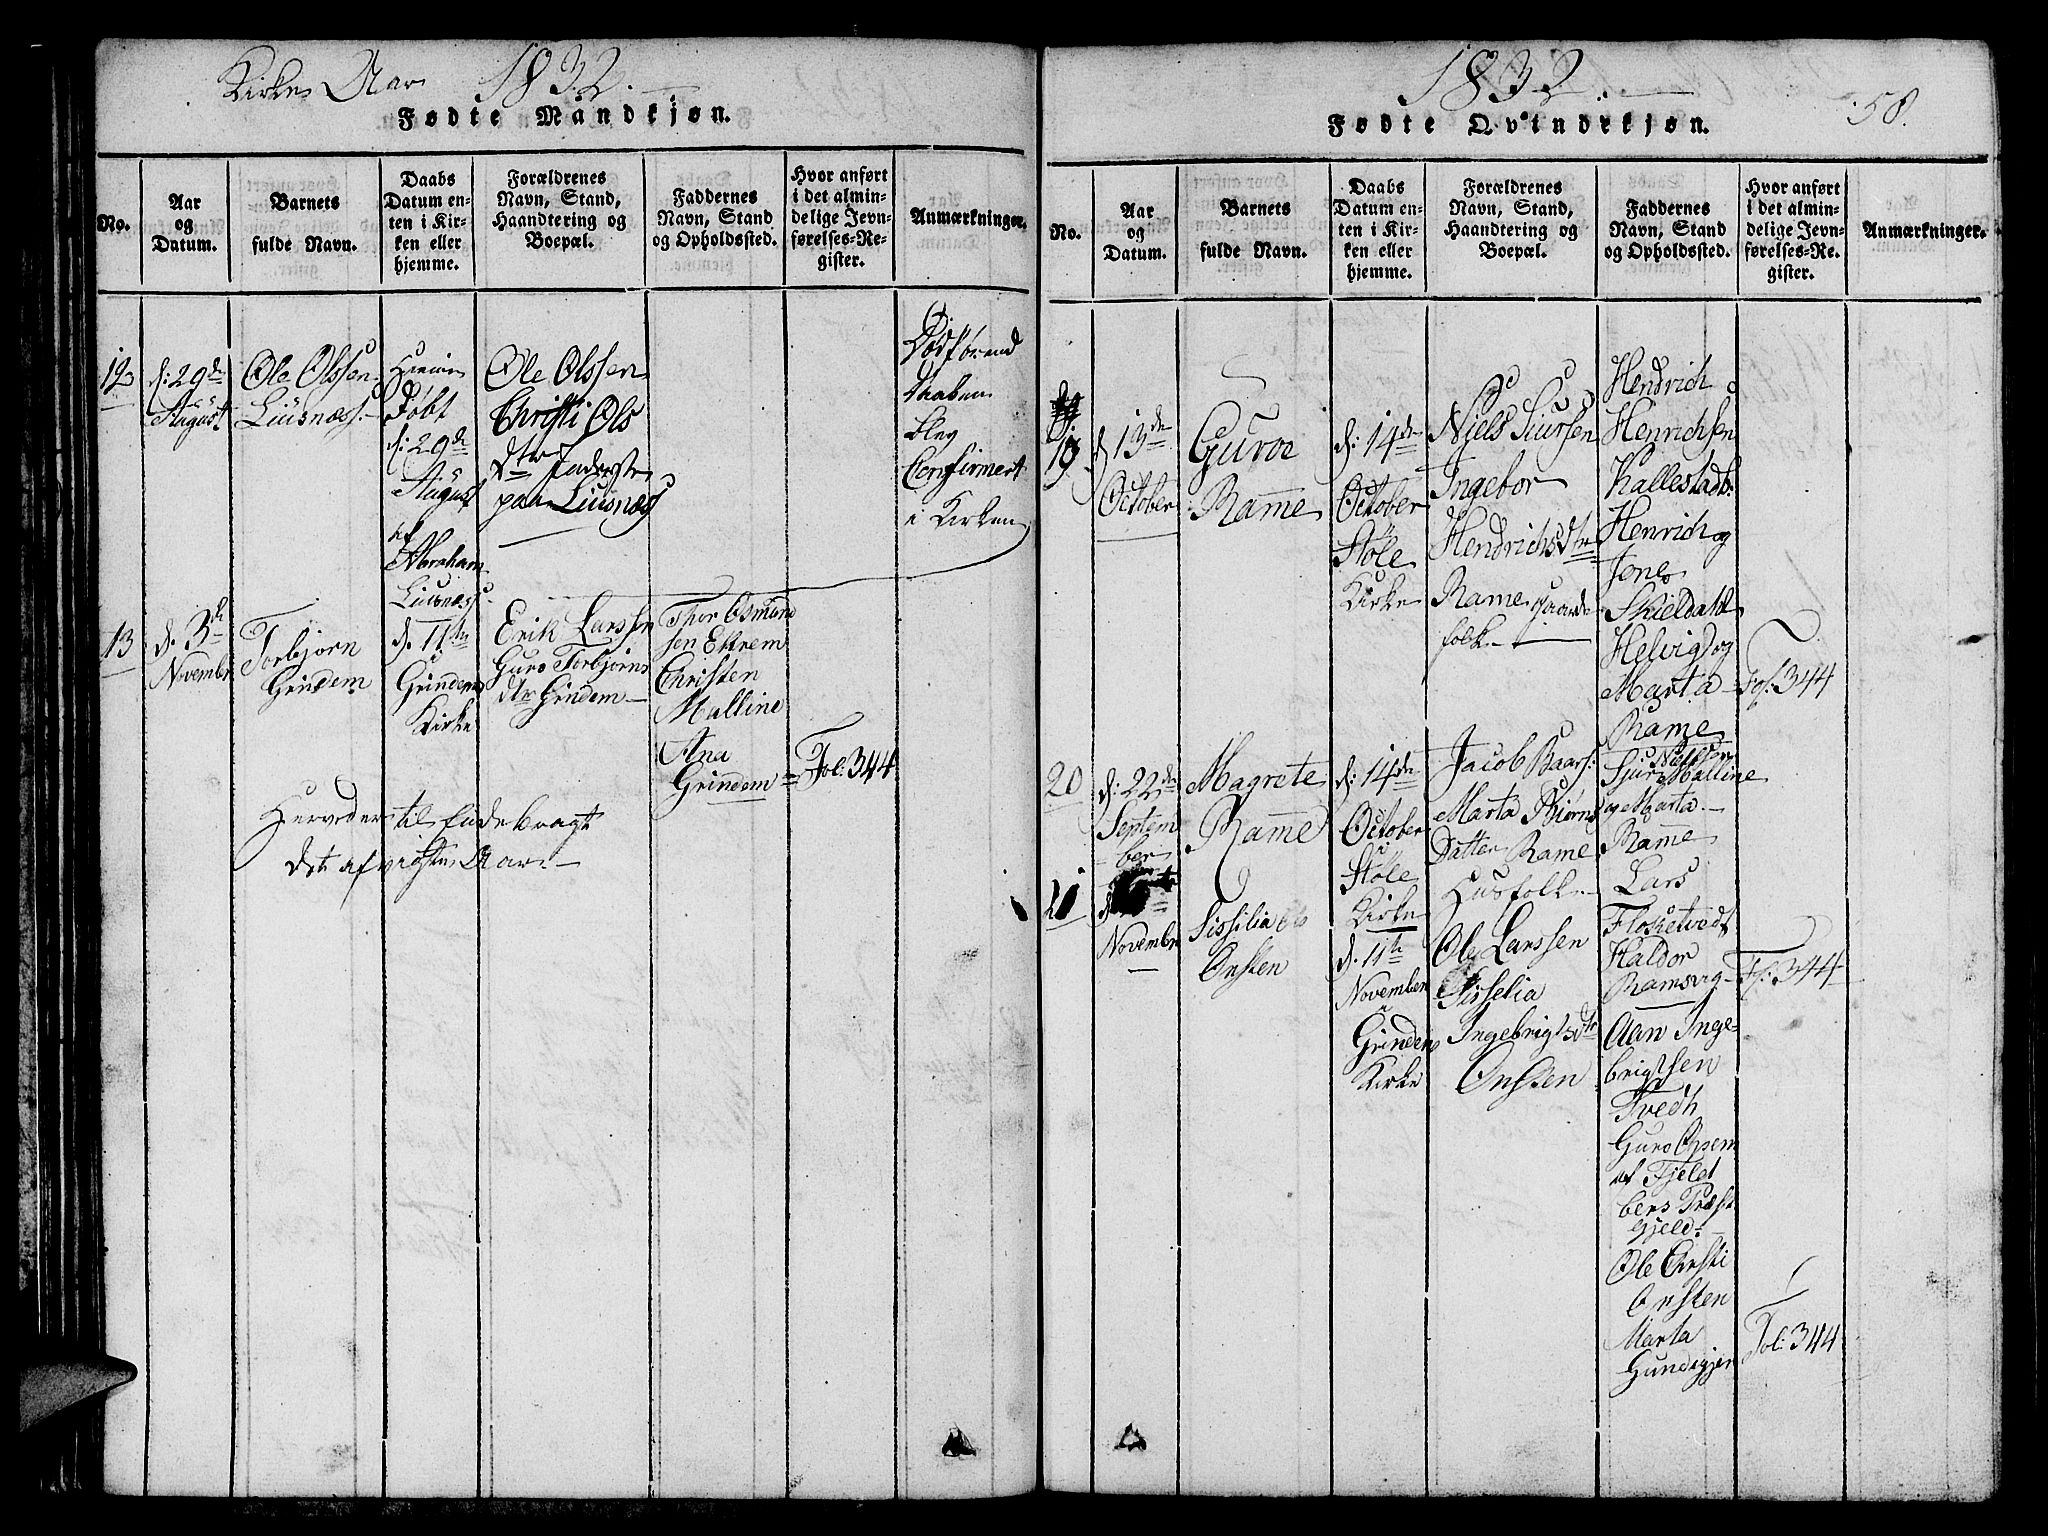 Kirke Aar 1832.
Fødte Mandkjøn.
No.
Aar
og
Datum.
Barnets
fulde Navn.
Daabs
Datum en-
ten i Kir-
ken eller
hjemme.
Forældrenes
Navn, Stand,
Haandtering og
Boepæl.
Faddernes
Navn, Stand
og Opholdssted.
Hvor anført
i det almin-
delige Jevn-
førelses-Re-
gister.
Anmærkninger.
12
d: 29de
August
Ole Olssen
Liusness.
Hieme
Døbt
d: 29de
August
af
Abraham
Liusness
Ole Olssen
Christi Ols
Dtr
paa Liusness
Død førend
Daaben
blev
Confirmert
i Kirken
13
d. 3de
Novembr
Torbjørn
Grindem
d. 11te
i
Grindem
Kirke
Erik Larssen
Guro Torbjørns
dtr Grindem
Thor Osmund
sen Ekrem
Christen
Malline
Ana
Grindem
Fol: 344
Herved er til Ende bragt
det afvigte Aar.
1832.
58.
Fødte Qvindekjøn.
No.
Aar
og
Datum.
Barnets
fulde Navn.
Daabs
Datum en-
ten i Kir-
ken eller
hjemme.
Forældrenes
Navn, Stand,
Haandtering og
Boepæl.
Faddernes
Navn, Stand
og Opholdssted.
Hvor anført
i det almin-
delige Jevn-
førelses-Re-
gister.
Anmærkninger.
19
d 13de
October
Guroe
Rame
d: 14de
October
i
Støle
Kirke
Niels Siursen
Ingebor
Hendrichsdtr
Rame gaarde
folk
Hendrich
Henrichsen
Kallestadb:
Henrich og
Jone
Skieldahl
Helvig og
Marta
Rame
Fol. 344
20
d: 22de
Septem
ber
Magrete
Rame
d: 14de
October
i
Støle
Kirke
Jacob Baars:
Marta Biørns
Datter Rame
Husfolk
Niels
Sjur Malline
og Marta
Rame
Lars
Flosketvedt
Haldor
Ramsvig
Fol: 344
21
d
Novembr
Sissilia
Onsten
d. 11te
November
i
Grindem
Kirke
Ole Larssen
Sisselia
Ingebrigtsdtr
Onsten
Aan Inge-
brigtsen
Tvedt
Guro Opsem
af Fjeld
bers Præst
gjeld
Ole Christi
Onsten
Marta
Gundegjer
Fol: 344